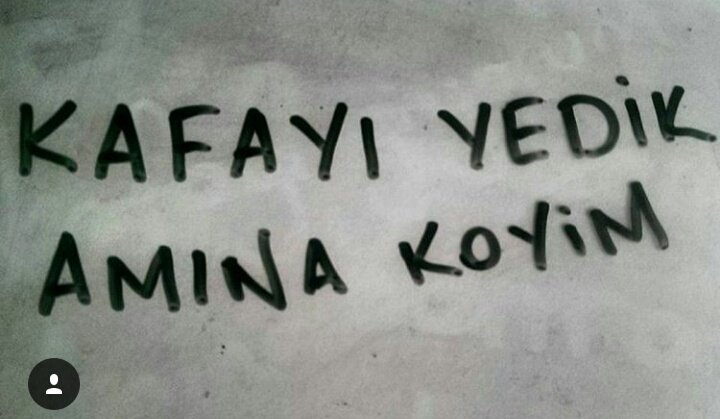 KAFAYI YEDİK
AMINA KOYİM